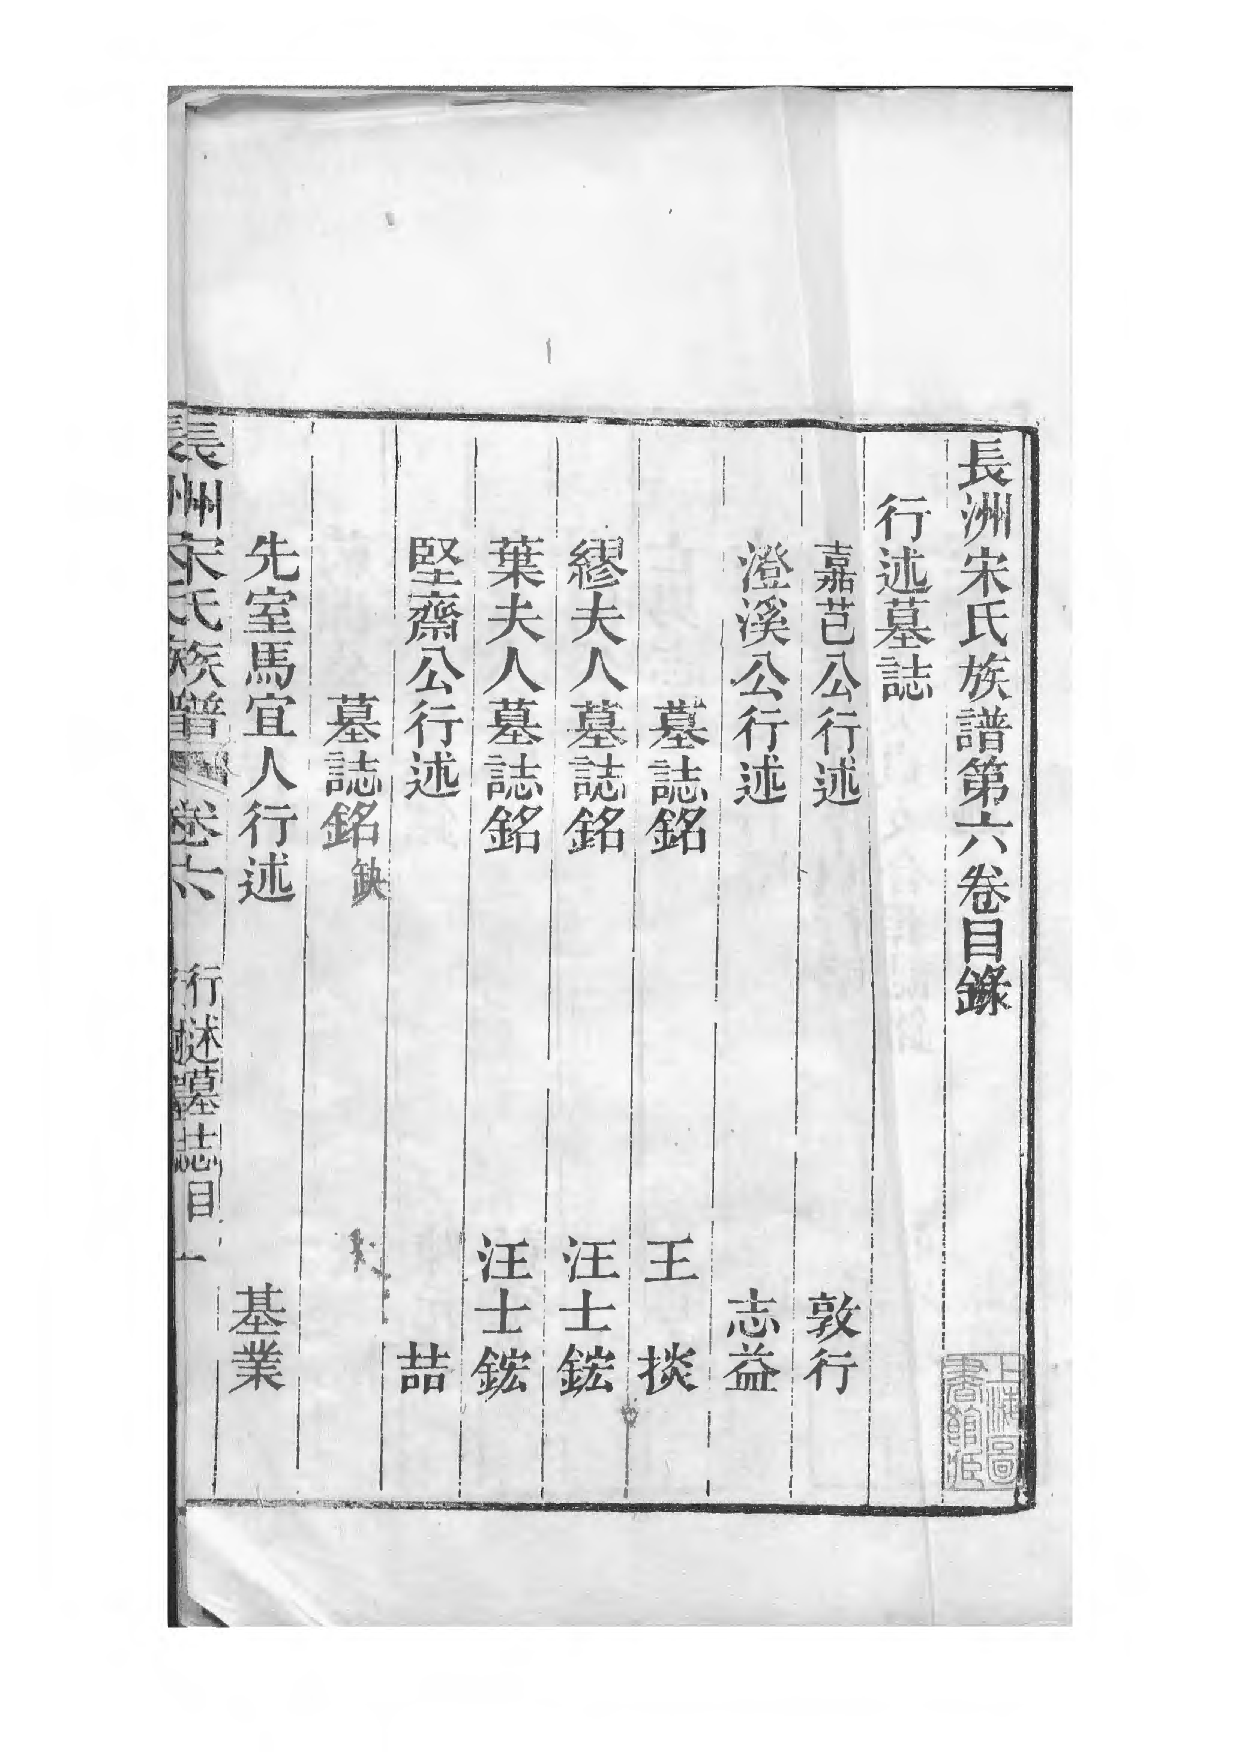 長洲宋氏族譜第六卷目錄
行述墓誌
嘉芑公行述 敦行
澄溪公行述 志益
墓誌銘 王掞
繆夫人墓誌銘 汪士鋐
葉夫人墓誌銘 汪士鋐
堅齋公行述 喆
墓誌銘缺
先室馬宜人行述 基業
長洲宋氏族譜 卷六 行述墓誌目 一
上海圖書館藏